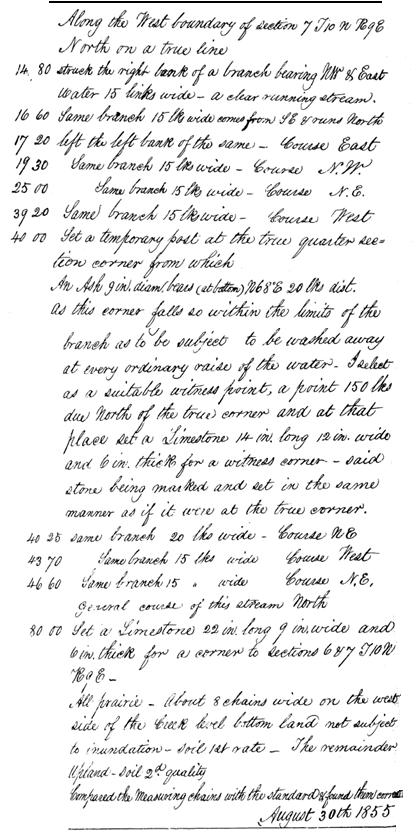 Along the West boundary of section 7 T10 N R9E
North on a true line
14 80 struck the right bank of a branch bearing NW & East
water 15 links wide - a clear running stream.
16 60 Same branch 15 lks wide comes from SE & runs North
17 20 left the left bank of the same - Course East
19 30 Same branch 15 lks wide - Course N.W.
25 00 Same branch 15 lks wide - Course N.E.
39 20 Same branch 15 lks wide - Course West
40 00 Set a temporary post at the true quarter sec=
tion corner from which
An Ash 9 in. diam. bears (at bottom) N68°E 20 lks dist.
As this corner falls so within the limits of the
branch as to be subject to be washed away
at every ordinary raise of the water - I select
as a suitable witness point, a point 150 lks
due North of the true corner and at that
place set a Limestone 14 in. long 12 in. wide
and 6 in. thick for a witness corner - said
stone being marked and set in the same
manner as if it were at the true corner.
40 25 same branch 20 lks wide - Course NE
43 70 Same branch 15 lks wide Course West
46 60 Same branch 15 " wide Course N.E,
General course of this stream North
80 00 Set a Limestone 22 in. long 9 in. wide and
6 in. thick for a corner to sections 6 & 7 T10 N
R9E -
All prairie - About 8 chains wide on the west
side of the Creek level bottom land not subject
to inundation - Soil 1st rate - The remainder
Upland - Soil 2d quality
Compared the Measuring chains with the standard & found them correct
August 30th 1855